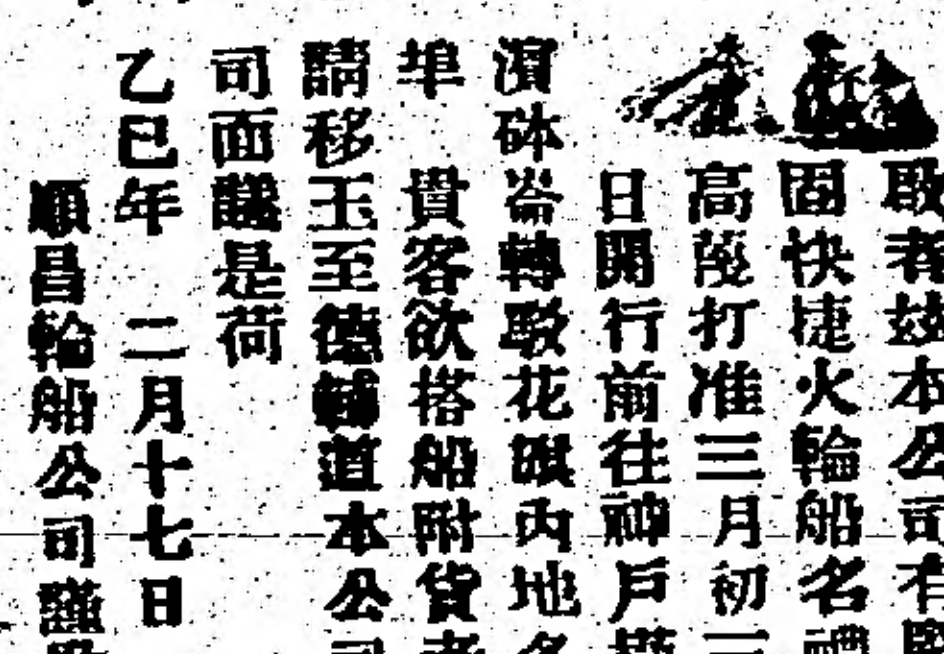 啟者茲本公司有堅
固快捷火輪船名禮
高陵打准三月初
日開行前往神戶橫
濱砵崙轉駁花旗內地各
埠 貴客欲搭船附貨者
請移玉至德輔道本公司
司面議是荷
乙巳年 二月十七日
順昌輪船公司謹啟